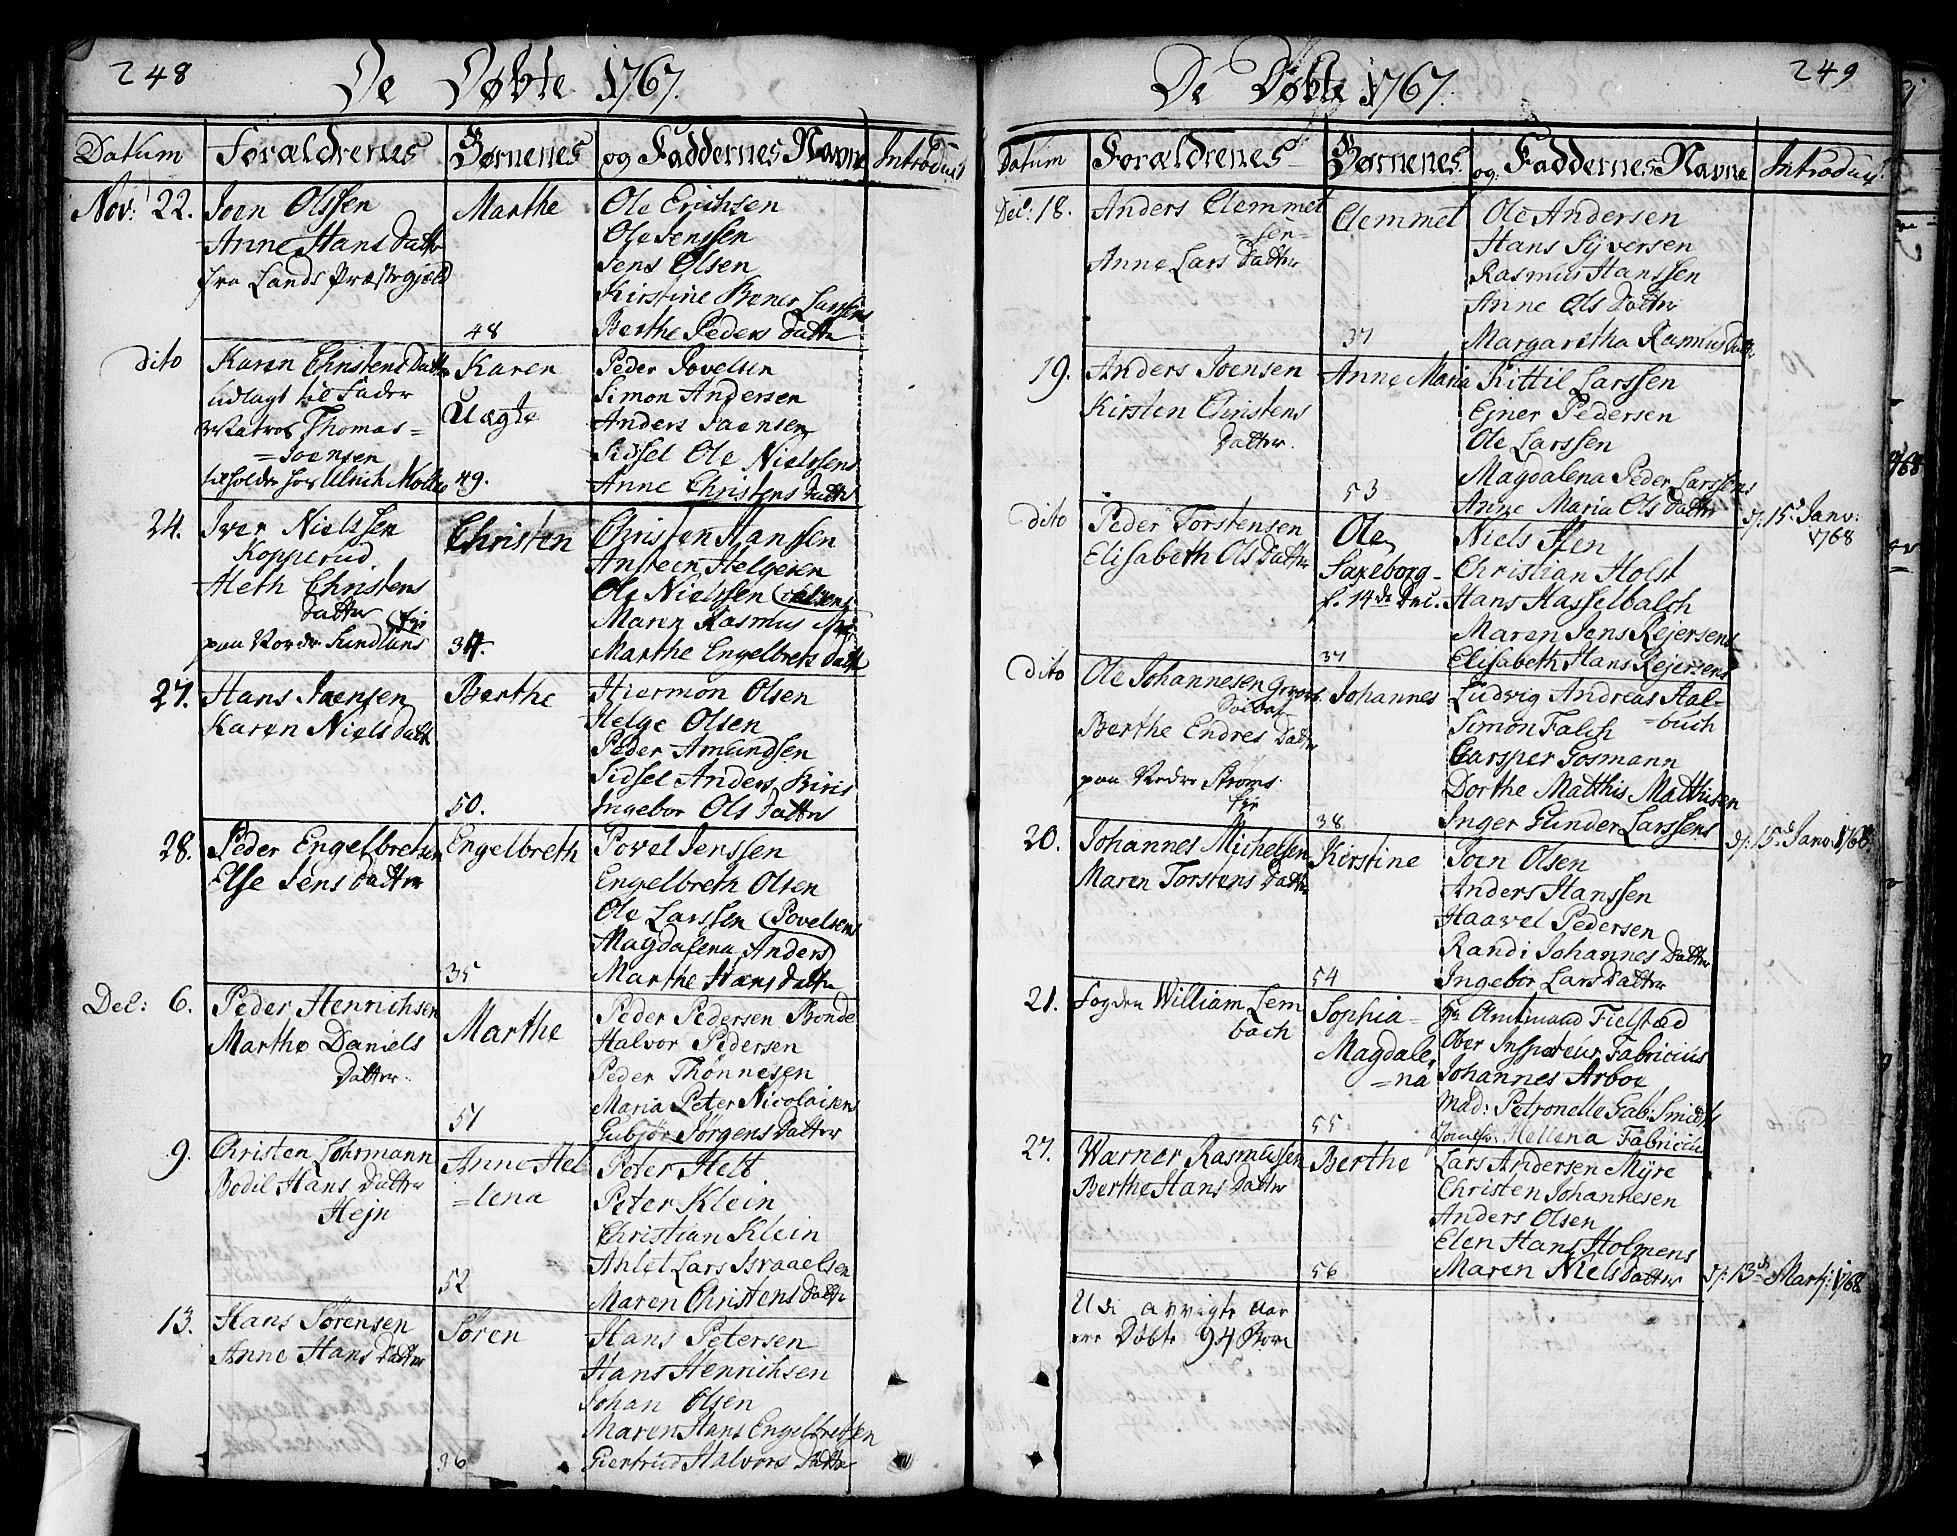 248
De Døbte 1767.
Datum
Forældrenes
Børnenes
og Faddernes Navne
Introduct
Nov: 22.
Joen Olssen
Anne Hans Datter
fra Lands Præstegield
Marthe
48
Ole Erichsen
Ole Jenssen
Jens Olsen
Kirstine Larssens
Berthe Peders Datter
dito
Karen Christens Datter
udlagt til Fader
Matros Thomas=
=Joensen
tilholder hos Ulrich
Karen
Uægte
49.
Peder Povelsen
Simon Andersen
Anders Joensen
Sidsel Ole Nielssens
Anne Christens Datter
24.
Iver Nielssen
Kopperud.
Aleth Christens
Datter
paa Vordr Sundlüns
Eje
Christen
34.
Christen Hanssen
Ansteen Helgesen
Ole Nielssen
Maren Rasmus
Marthe Engelbrets Datter
27.
Hans Joensen
Karen Niels Datt
Berthe
50.
Hiermon Olsen
Helge Olsen
Peder Amundsen
Sidsel Anders Biris
Ingebor Ols Datter
28.
Peder Engelbretsen
Else Jens Datter
Engelbreth
35
Povel Jenssen
Engelbreth Olsen
Ole Larssen (Povelsens
Magdalena Anders
Marthe Hans Datter
Dec: 6.
Peder Henrichsen
Marthe Daniels
Datter.
Marthe
51
Peder Pedersen Bonde
Halvor Pedersen
Peder Thönnesen
Maria Peter Nicolaisens
Gubjör Jörgens Datter
9.
Christen Lohrmann
Bodil Hans Datter
Hejn
Anne Hel
=lena
52
Peter Helt
Peter Klein
Christian Klein
Ahlet Lars Israaelsen
Maren Christens Datter
13.
Hans Sørensen
Anne Hans Datter
Søren
36
Hans Petersen
Hans Henrichsen
Johan Olsen
Maren Hans Engelbretsen
Giertrud Halvors Datter
249
De Døbte 1767.
Datum
Forældrenes
Børnenes
og Faddernes Navne
Introduct.
Dec: 18.
Anders Clemmet
=sen=
Anne Lars Datter
Clemmet
37
Ole Andersen
Hans Syversen
Rasmus Hanssen
Anne Ols Datter
Margaretha Rasmus Datter
19.
Anders Joensen
Kirsten Christens
Datter.
Anne Maria
53
Kittil Larssen
Ejner Pedersen
Ole Larssen
Magdalena Peder Larssens
Anne Maria Ols Datter
dito
Peder Torstensen
Elisabeth Ols Datter
Ole
Saxeborg-
f. 14de Dec.
37
Niels Sten
Christian Holst
Hans Hasselbalch
Maren Jens Rejersens
Elisabeth Hans Rejersens
d: 15d Janv:
1768
dito
Ole Johannesen
Berthe Endres Datter
paa Vedre Strøms
Eje
Johannes
38
Ludvig Andreas Aal-
=buch
Simon Falch
Carsper Gosmann
Dorthe Matthis Matthisen
Inger Gunder Larssens
20.
Johannes Michelsen
Maren Torstens Datter
Kirstine
54
Joen Olsen
Anders Hanssen
Haavel Pedersen
Randi Johannes Datter
Ingebor Lars Datter
d: 15d Janv: 1768
21.
Fogden William Lem
bach
Sophia=
Magdale
=na
55
Hr Amtmand Fielsted
Ober Inspecteur Fabricius
Johannes Arboe
Mad: Petronelle Gab: Smidts
Jomfr: Hellena Fabricius
27.
Warner Rasmussen
Berthe Hans Datter
Berthe
56
Lars Andersen Myre
Christen Johannesen
Anders Olsen
Elen Hans Holmens
Maren Niels Datter
d: 13d Martj: 1768
Udi avvigte Aar
ere Döbte 94 Börn